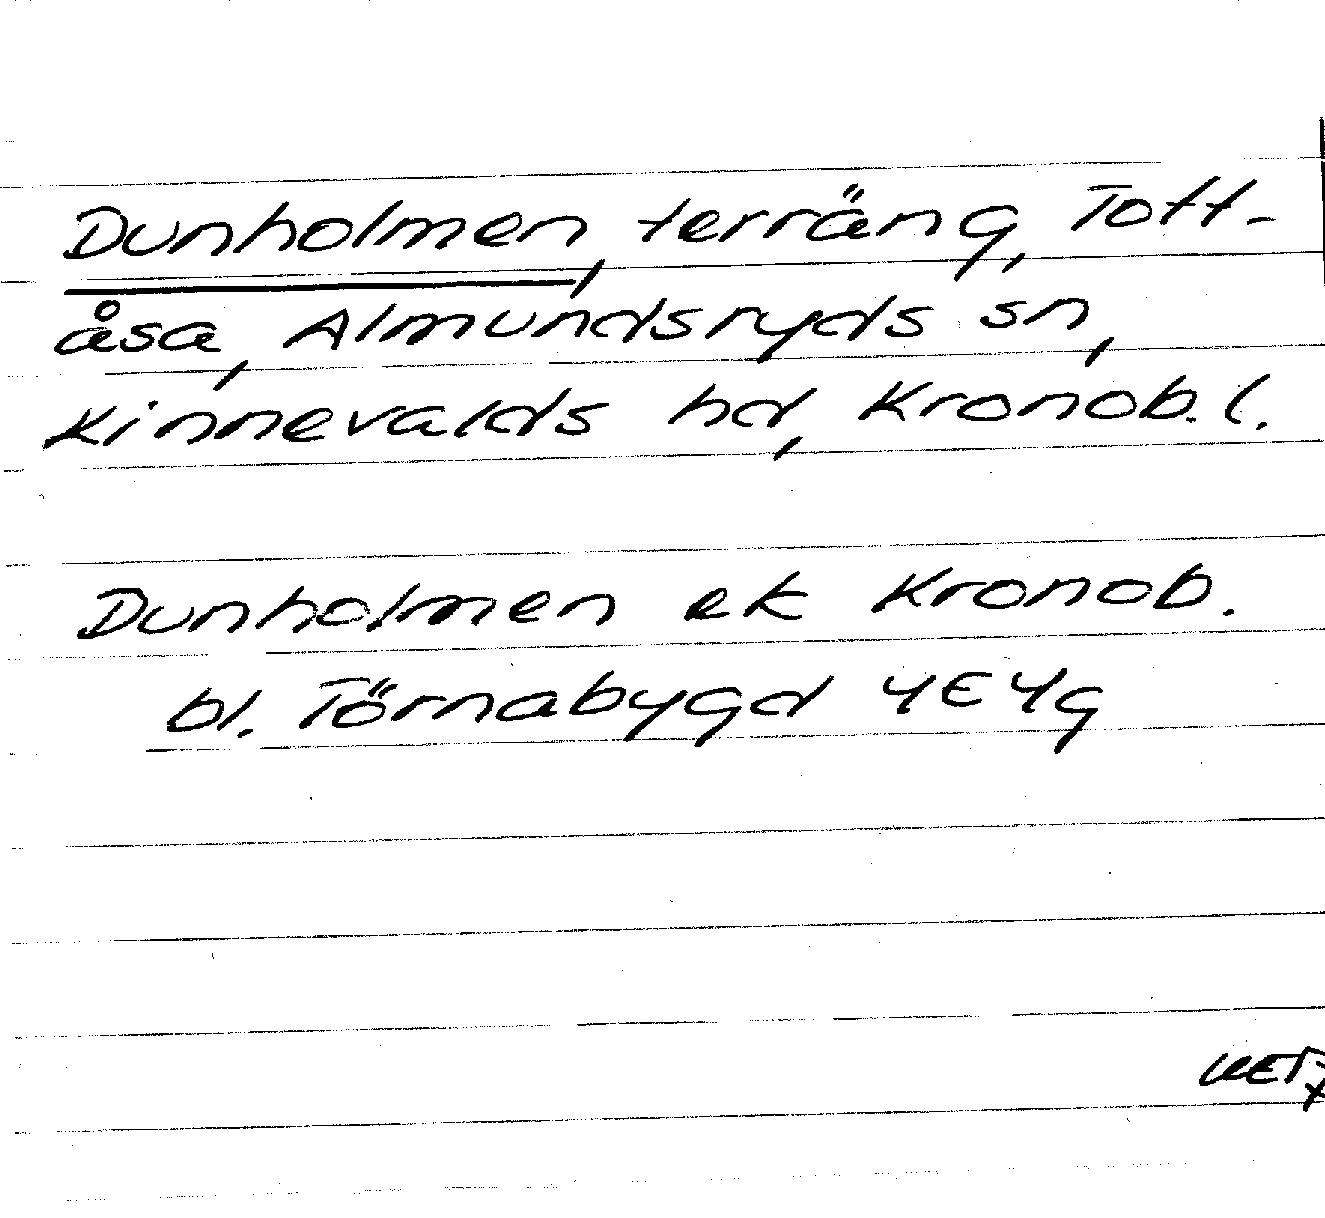 Dunholmen, terräng, Tott-
åsa, Almundsryds sn,
Kinnevalds hd, Kronob. l.
Dunholmen ek Kronob.
bl. Törnabygd 4E4g